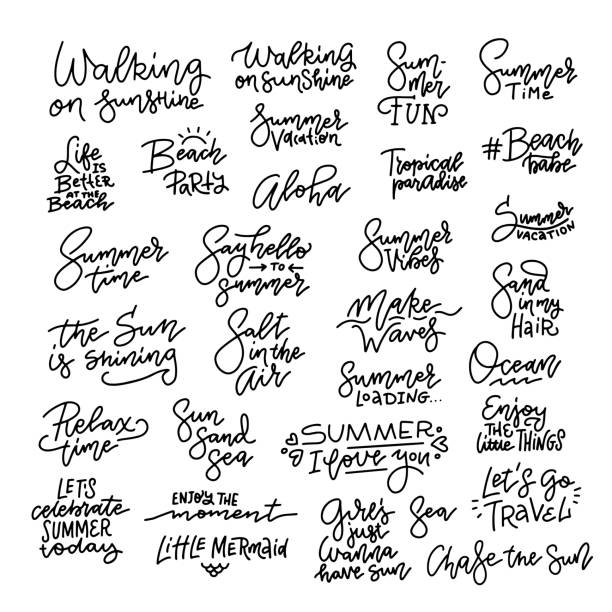 Walking
on Sunshine
Walking
on Sunshine
Sum-
mer
FUN
Summer
Time
Summer
Vacation
#Beach
babe
Life
is
Better
at the
Beach
Beach
Party
Aloha
Tropical
paradise
Summer
Vacation
Summer
time
Say hello
to
summer
Summer
Vibes
Sand
in my
Hair
the Sun
is shining
Salt
in the
air
Make
Waves
Ocean
Summer
Loading...
Relax
time
Sun
Sand
Sea
SUMMER
I love you
Enjoy
the
little things
Let's
celebrate
SUMMER
today
Enjoy the
moment
Little Mermaid
Girl's
just
wanna
have sun
Sea
Let's Go
Travel
Chase the Sun